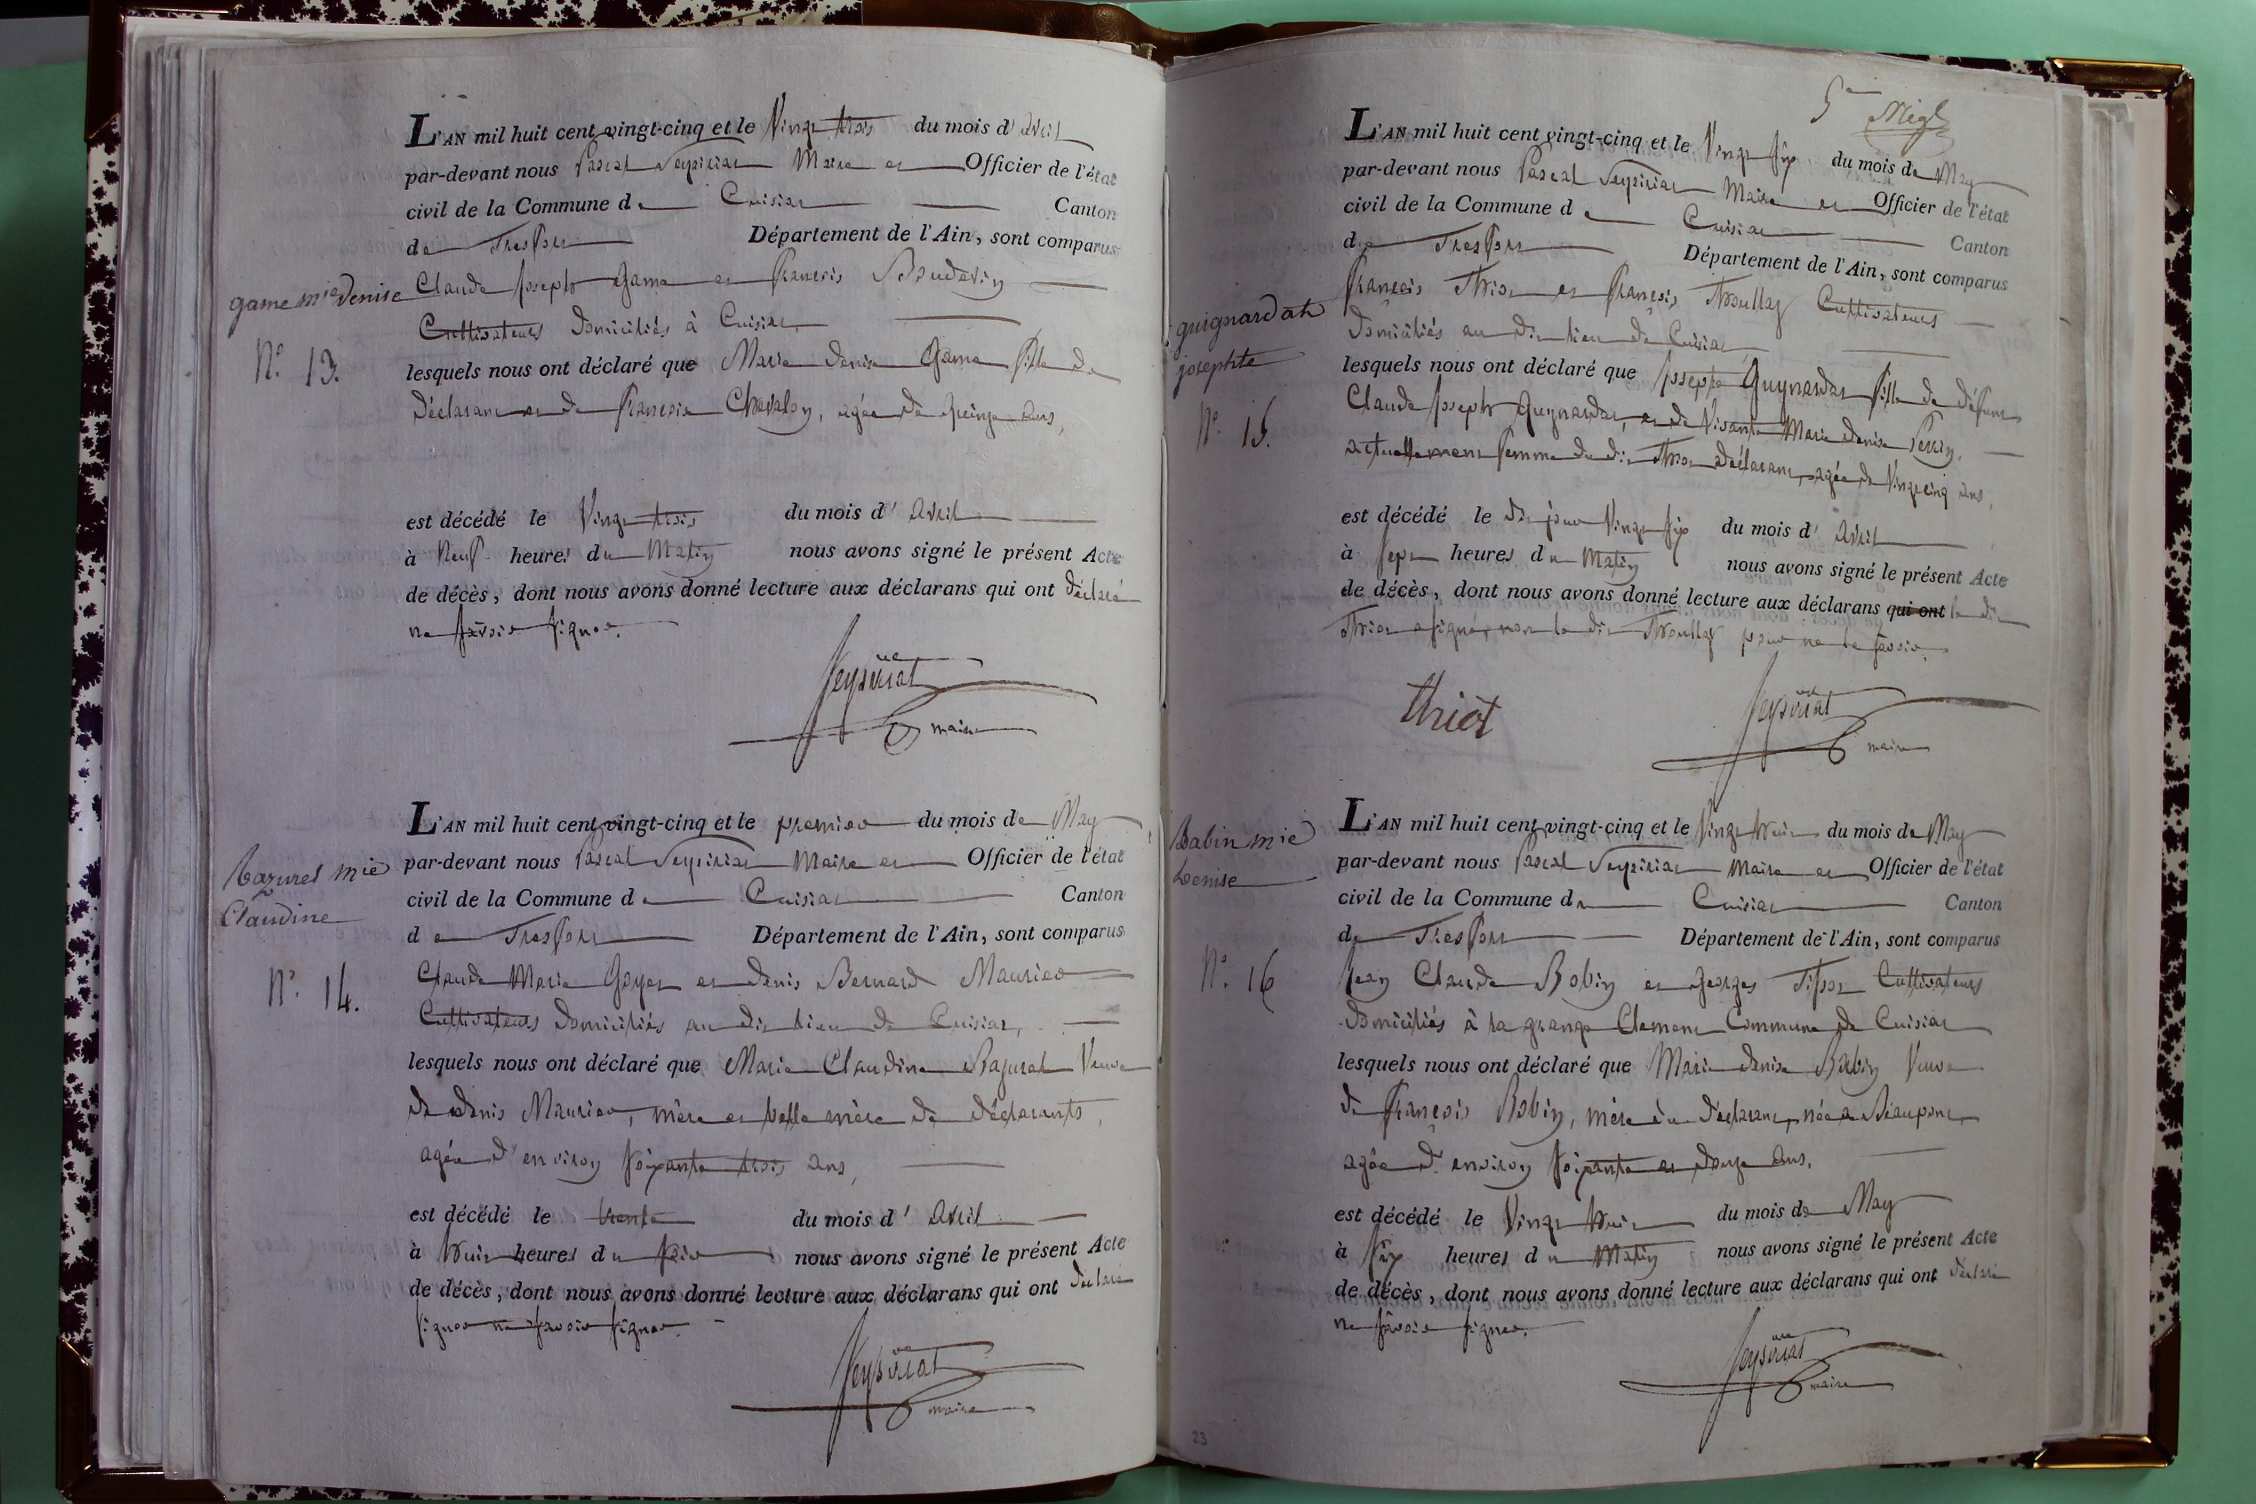 L'AN mil huit cent vingt-cinq et le Vingt trois du mois d'avril
par-devant nous Pascal Seyssirat Maire et Officier de l'état
civil de la Commune de Cuisiat Canton
de Treffort Département de l'Ain, sont comparus
game mie denise
Claude Joseph Game et francois Boudevin
Cultivateurs domiciliés à Cuisiat
N.o 13.
lesquels nous ont déclaré que Marie denise Game fille de
déclarant et de francoise Chavalon, agée de quinze ans,
est décédé le Vingt trois du mois d'avril
à Neuf heures du Matin nous avons signé le présent Acte
de décès, dont nous avons donné lecture aux déclarans qui ont déclaré
ne Savoir Signer.
maire
L'AN mil huit cent vingt-cinq et le premier du mois de May
par-devant nous Pascal Maire et Officier de l'état
civil de la Commune de Cuisiat Canton
de Treffort Département de l'Ain, sont comparus
bazuret mie
Claudine
N.o 14.
Claude Marie Goyet et denis Bernard Maurier
Cultivateurs domiciliés au dit lieu de Cuisiat,
lesquels nous ont déclaré que Marie Claudine Bazurat Veuve
de denis Maurier, mère et belle mère de déclarants,
agée d'environ Soixante trois ans,
est décédé le trente du mois d'avril
à huit heures du Soir nous avons signé le présent Acte
de décès, dont nous avons donné lecture aux déclarans qui ont déclaré
Signer ne Savoir Signer.
maire
5e
L'AN mil huit cent vingt-cinq et le Vingt Six du mois de May
par-devant nous Pascal Maire et Officier de l'état
civil de la Commune de Cuisiat Canton
de Treffort Département de l'Ain, sont comparus
François Thiot et François Thoullaz Cultivateurs
guignardat
josephte
N.o 15.
domiciliés au dit lieu de Cuisiat
lesquels nous ont déclaré que Josepte Guynardat fille de défunt
Claude Joseph Guynardat, et de Vivante Marie denise Perrin,
actuellement femme du dit Thiot déclarant, agée de Vingt cinq ans,
est décédé le dit jour Vingt Six du mois d'avril
à Sept heures du Matin nous avons signé le présent Acte
de décès, dont nous avons donné lecture aux déclarans qui ont le dit
Thiot a signé, non le dit Thoullaz pour ne le Savoir.
thiot
maire
L'AN mil huit cent vingt-cinq et le Vingt huit du mois de May
par-devant nous Pascal Maire et Officier de l'état
civil de la Commune de Cuisiat Canton
de Treffort Département de l'Ain, sont comparus
Babin mie
Denise
N.o 16
Jean Claude Bobin et georges Tissot Cultivateurs
domiciliés à la grange Clement Commune de Cuisiat
lesquels nous ont déclaré que Marie denise Babin Veuve
de François Bobin, mère du déclarant, née a Beaupont,
agée d'environ Soixante et douze ans,
est décédé le Vingt huit du mois de May
à Six heures du Matin nous avons signé le présent Acte
de décès, dont nous avons donné lecture aux déclarans qui ont déclaré
ne Savoir Signer.
maire
23